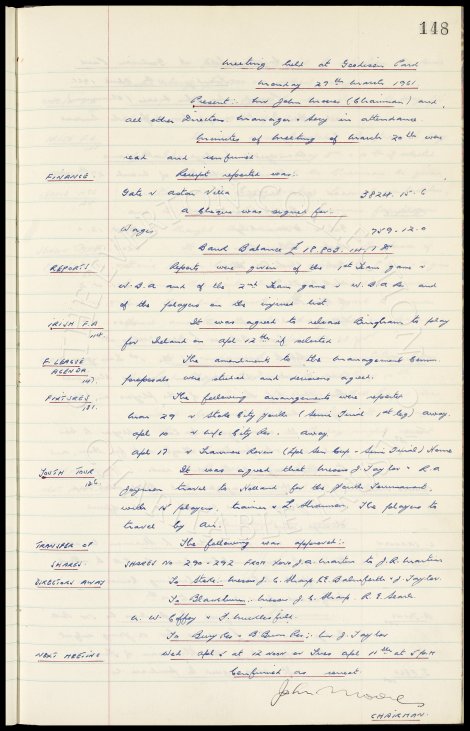 148
Meeting held at Goodison Park
Monday 27th March 1961
Present:- Mr John Moores (Chairman) and
all other Directors. Manager & Secy in attendance
Minutes of Meeting of March 20th were
read and confirmed
FINANCE. Receipt reported was:-
Gate v Aston Villa 3824.15.6
A Cheque was signed for:-
Wages 759.12.0
Bank Balance £18.803.14.7
REPORTS. Reports were given of the 1st Team game v
W.B.A and of the 2nd Team game v W.B.A Res and
of the players on the injured list
IRISH F.A It was agreed to release Bingham to play
114. for Ireland on Apl 12th if selected
F. LEAGUE The amendments to the Management Comm.
AGENDA proposals were studied and decisions agreed.
147.
FIXTURES The following arrangements were reported
131. Mar 29 v Stoke City Youths (Semi Final 1st leg) away.
Apl 10 v City Res. away
Apl 17 v Tranmere Rovers (Lpl Sen Cup - Semi Final) Home
YOUTH TOUR It was agreed that Messrs J Taylor & R A
travel to Holland for the Youth Tournament,
with players, trainer & The players to
travel by Air.
TRANSFER OF The following was approved:-
SHARES. SHARES No 290-292 FROM J.A. Martin to J.R. Martin
DIRECTORS AWAY To Stoke: Messrs J. C. Sharp J. Taylor.
To Blackburn: Messrs J. C. Sharp, R. E. Searle.
W. Coffey & F. Micklesfield.
To Bury Res v B'Burn Res: Mr J Taylor
NEXT MEETING Wed Apl 5 at 12 noon or Tues Apl 11th at 5 p.m
Confirmed as correct
John Moores
CHAIRMAN.